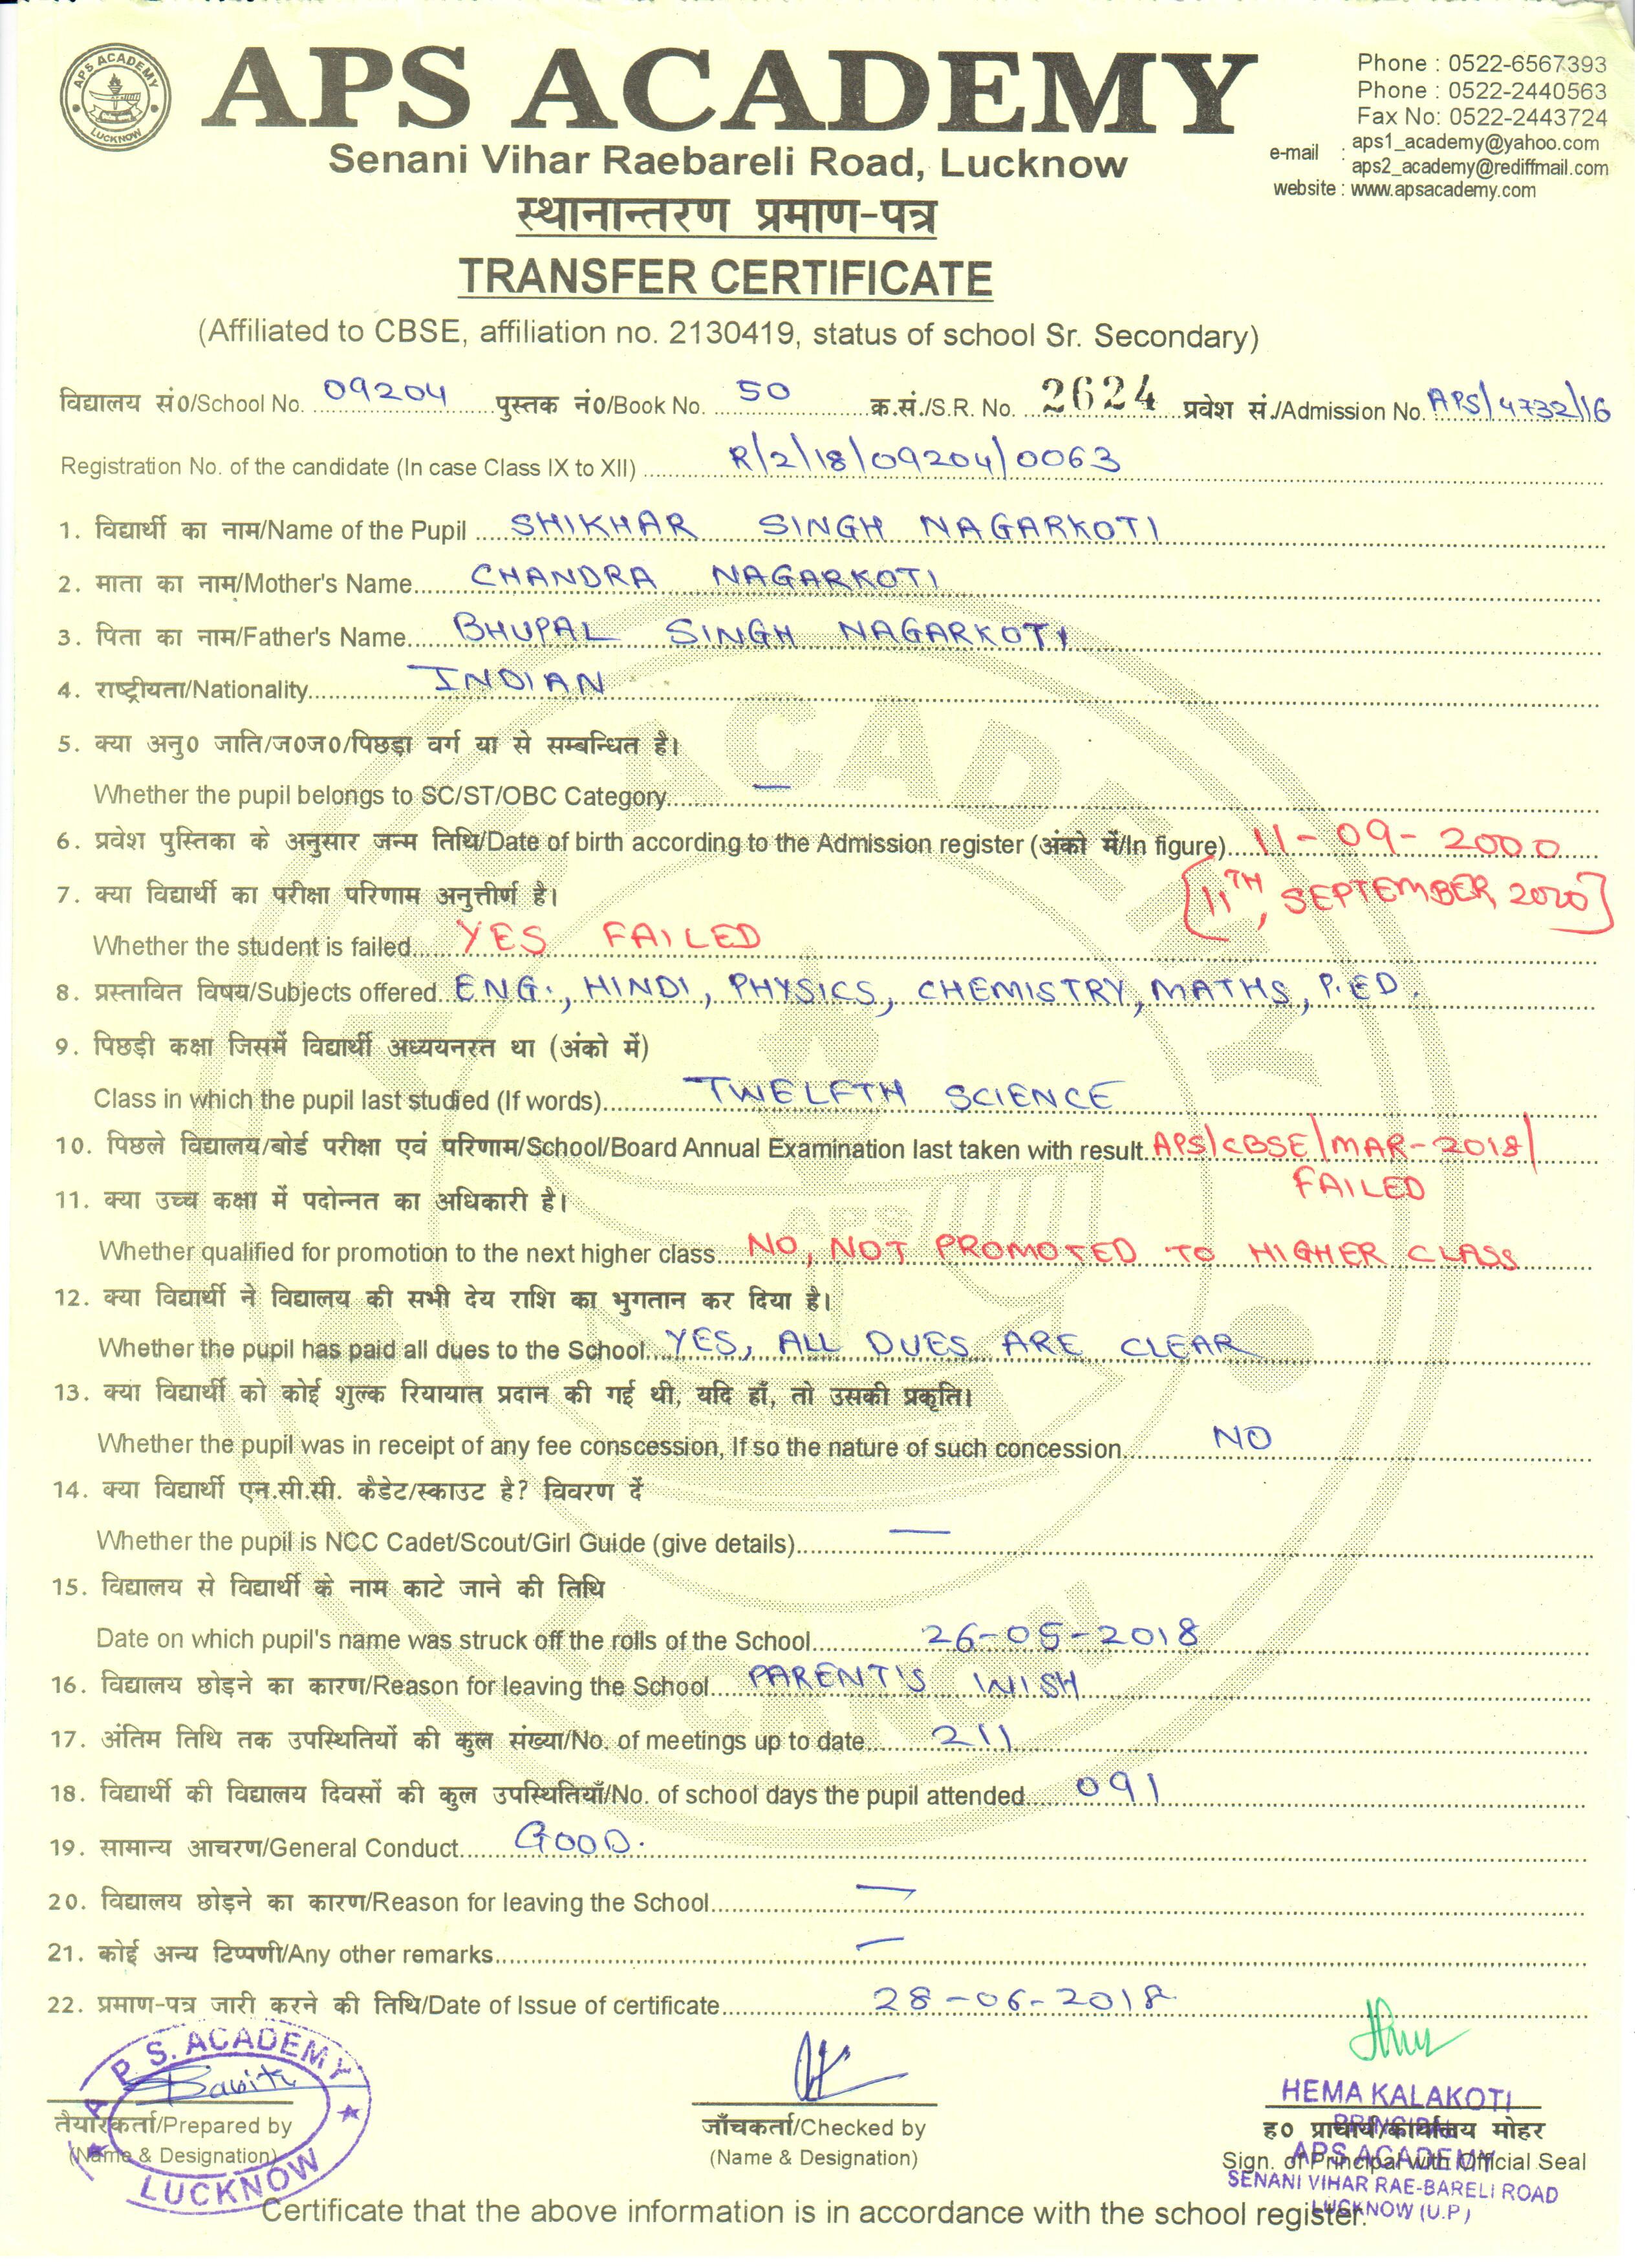 APS ACADEMY
LUCKNOW
APS ACADEMY
Senani Vihar Raebareli Road, Lucknow
Phone : 0522-6567393
Phone : 0522-2440563
Fax No: 0522-2443724
e-mail : aps1_academy@yahoo.com
aps2_academy@rediffmail.com
website : www.apsacademy.com
स्थानान्तरण प्रमाण-पत्र
TRANSFER CERTIFICATE
(Affiliated to CBSE, affiliation no. 2130419, status of school Sr. Secondary)
विद्यालय सं0/School No. 09204 पुस्तक नं0/Book No. 50 क्र.सं./S.R. No. 2624 प्रवेश सं./Admission No. APS/4732/16
Registration No. of the candidate (In case Class IX to XII) R/2/18/09204/0063
1. विद्यार्थी का नाम/Name of the Pupil SHIKHAR SINGH NAGARKOTI
2. माता का नाम/Mother's Name CHANDRA NAGARKOTI
3. पिता का नाम/Father's Name BHUPAL SINGH NAGARKOTI
4. राष्ट्रीयता/Nationality INDIAN
5. क्या अनु0 जाति/ज0ज0/पिछड़ा वर्ग या से सम्बन्धित है।
Whether the pupil belongs to SC/ST/OBC Category —
6. प्रवेश पुस्तिका के अनुसार जन्म तिथि/Date of birth according to the Admission register (अंको में/In figure) 11-09-2000
[11TH, SEPTEMBER 2000]
7. क्या विद्यार्थी का परीक्षा परिणाम अनुत्तीर्ण है।
Whether the student is failed YES FAILED
8. प्रस्तावित विषय/Subjects offered ENG., HINDI, PHYSICS, CHEMISTRY, MATHS, P.ED.
9. पिछड़ी कक्षा जिसमें विद्यार्थी अध्ययनरत था (अंको में)
Class in which the pupil last studied (If words) TWELFTH SCIENCE
10. पिछले विद्यालय/बोर्ड परीक्षा एवं परिणाम/School/Board Annual Examination last taken with result APS/CBSE/MAR-2018/
FAILED
11. क्या उच्च कक्षा में पदोन्नत का अधिकारी है।
Whether qualified for promotion to the next higher class NO, NOT PROMOTED TO HIGHER CLASS
12. क्या विद्यार्थी ने विद्यालय की सभी देय राशि का भुगतान कर दिया है।
Whether the pupil has paid all dues to the School YES, ALL DUES ARE CLEAR
13. क्या विद्यार्थी को कोई शुल्क रियायात प्रदान की गई थी, यदि हाँ, तो उसकी प्रकृति।
Whether the pupil was in receipt of any fee conscession, If so the nature of such concession NO
14. क्या विद्यार्थी एन.सी.सी. कैडेट/स्काउट है? विवरण दें
Whether the pupil is NCC Cadet/Scout/Girl Guide (give details) —
15. विद्यालय से विद्यार्थी के नाम काटे जाने की तिथि
Date on which pupil's name was struck off the rolls of the School 26-05-2018
16. विद्यालय छोड़ने का कारण/Reason for leaving the School PARENT'S WISH
17. अंतिम तिथि तक उपस्थितियों की कुल संख्या/No. of meetings up to date 211
18. विद्यार्थी की विद्यालय दिवसों की कुल उपस्थितियाँ/No. of school days the pupil attended 091
19. सामान्य आचरण/General Conduct GOOD.
20. विद्यालय छोड़ने का कारण/Reason for leaving the School —
21. कोई अन्य टिप्पणी/Any other remarks —
22. प्रमाण-पत्र जारी करने की तिथि/Date of Issue of certificate 28-06-2018
A.P.S. ACADEMY
LUCKNOW
तैयारकर्ता/Prepared by
(Name & Designation)
जाँचकर्ता/Checked by
(Name & Designation)
HEMA KALAKOTI
PRINCIPAL
ह0 प्राचार्य/कार्यालय मोहर
APS ACADEMY
Sign. of Principal with Official Seal
SENANI VIHAR RAE-BARELI ROAD
LUCKNOW (U.P)
Certificate that the above information is in accordance with the school register.